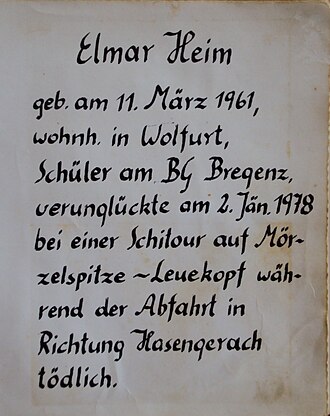 Elmar Heim
geb. am 11. März 1961,
wohnh. in Wolfurt,
Schüler am BG Bregenz,
verunglückte am 2. Jän. 1978
bei einer Schitour auf Mör-
zelspitze ~ Leuekopf wäh-
rend der Abfahrt in
Richtung Hasengerach
tödlich.